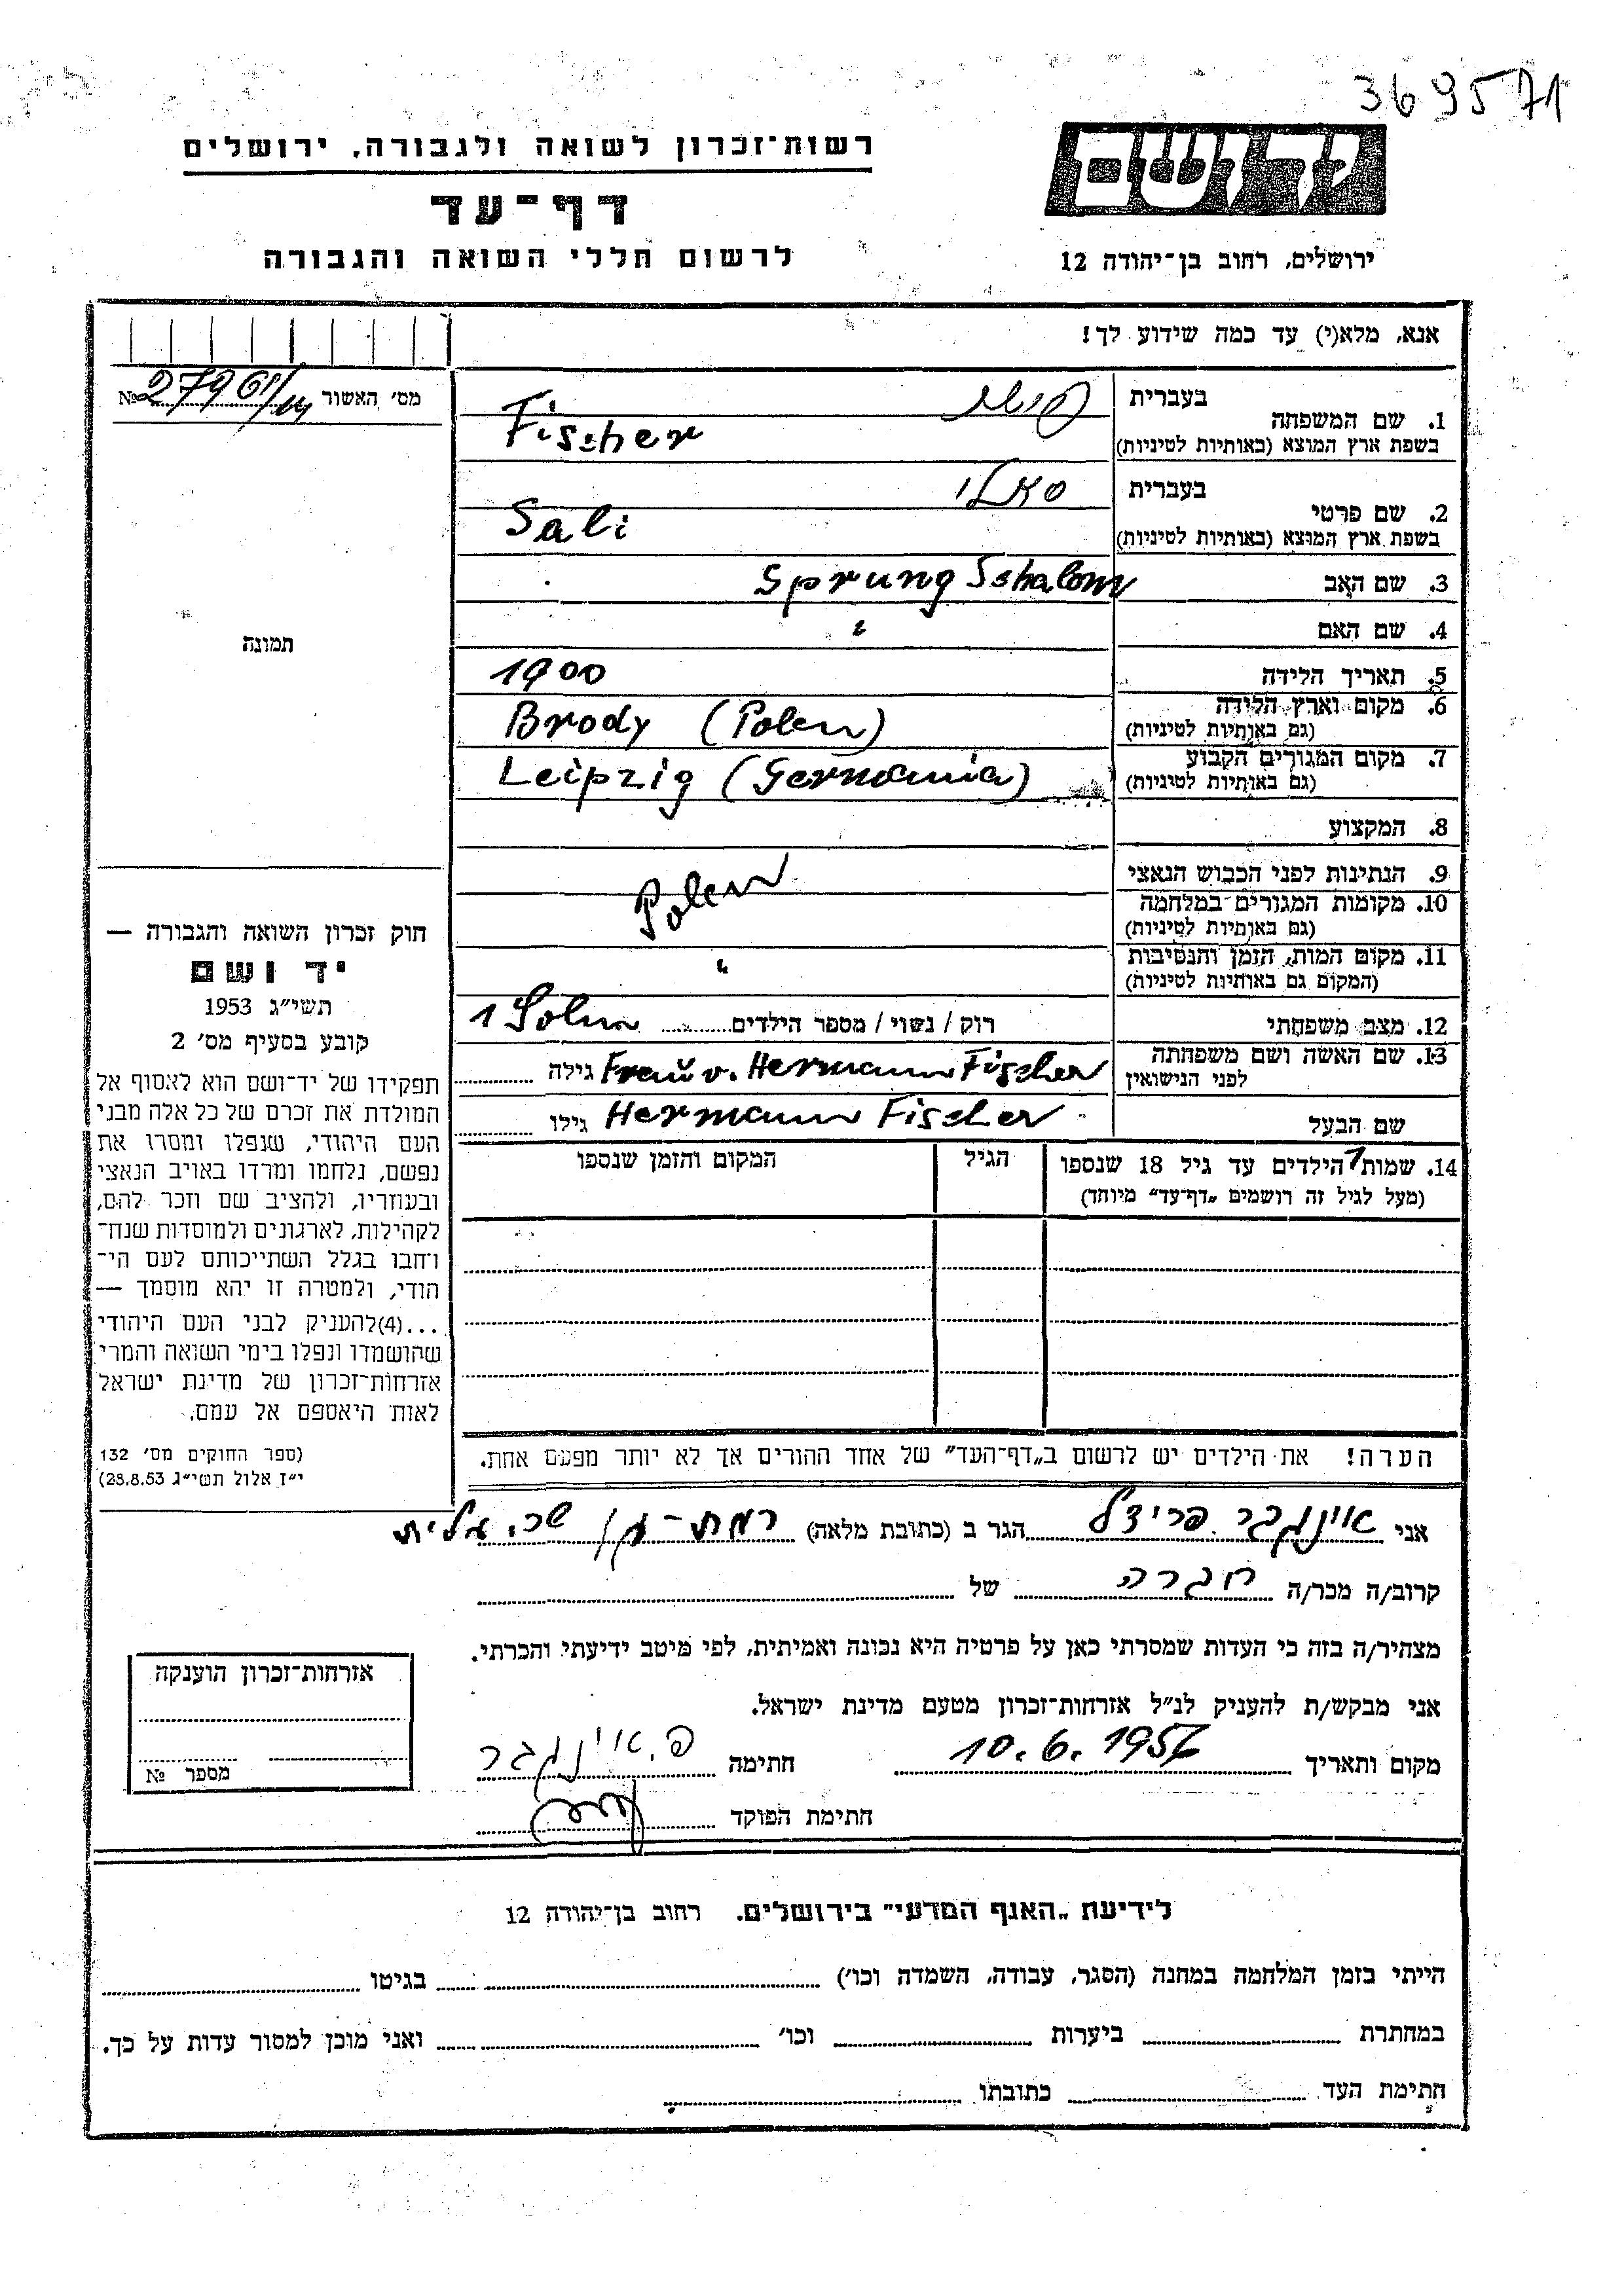 369571
יד ושם
רשות־זכרון לשואה ולגבורה, ירושלים
דף־עד
לרשום חללי השואה והגבורה
ירושלים, רחוב בן־יהודה 12
אנא, מלא(י) עד כמה שידוע לך!
מס׳ האשור №
1. שם המשפחה
בעברית פישר
בשפת ארץ המוצא (באותיות לטיניות) Fischer
2. שם פרטי
בעברית סאלי
בשפת ארץ המוצא (באותיות לטיניות) Sali
3. שם האב Sprung Schalom
4. שם האם
5. תאריך הלידה 1900
6. מקום וארץ הלידה Brody (Polen)
(גם באותיות לטיניות)
7. מקום המגורים הקבוע Leipzig (Germania)
(גם באותיות לטיניות)
8. המקצוע
9. הנתינות לפני הכבוש הנאצי
10. מקומות המגורים במלחמה Polen
(גם באותיות לטיניות)
11. מקום המות, הזמן והנסיבות
(המקום גם באותיות לטיניות)
12. מצב משפחתי רוק / נשוי / מספר הילדים 1 Sohn
13. שם האשה ושם משפחתה Frau v. Hermann Fischer גילה
לפני הנישואין
שם הבעל Hermann Fischer גילו
14. שמות הילדים עד גיל 18 שנספו הגיל המקום והזמן שנספו
(מעל לגיל זה רושמים „דף־עד״ מיוחד)
הערה! את הילדים יש לרשום ב„דף־העד״ של אחד ההורים אך לא יותר מפעם אחת.
תמונה
חוק זכרון השואה והגבורה —
יד ושם
תשי״ג 1953
קובע בסעיף מס׳ 2
תפקידו של יד־ושם הוא לאסוף אל
המולדת את זכרם של כל אלה מבני
העם היהודי, שנפלו ומסרו את
נפשם, נלחמו ומרדו באויב הנאצי
ובעוזריו, ולהציב שם וזכר להם,
לקהילות, לארגונים ולמוסדות שנח־
רבו בגלל השתייכותם לעם הי־
הודי, ולמטרה זו יהא מוסמך —
...(4)להעניק לבני העם היהודי
שהושמדו ונפלו בימי השואה והמרי
אזרחות־זכרון של מדינת ישראל
לאות היאספם אל עמם.
(ספר החוקים מס׳ 132
י״ז אלול תשי״ג 28.8.53)
אני אינגבר פרידל הגר ב (כתובת מלאה) רמת-גן
קרוב/ה מכר/ה חברה של
מצהיר/ה בזה כי העדות שמסרתי כאן על פרטיה היא נכונה ואמיתית, לפי מיטב ידיעתי והכרתי.
אני מבקש/ת להעניק לנ״ל אזרחות־זכרון מטעם מדינת ישראל.
מקום ותאריך 10.6.1956 חתימה פ. אינגבר
חתימת הפוקד
אזרחות־זכרון הוענקה
מספר №
לידיעת „האגף המדעי״ בירושלים. רחוב בן־יהודה 12
הייתי בזמן המלחמה במחנה (הסגר, עבודה, השמדה וכו׳) בגיטו
במחתרת ביערות וכו׳ ואני מוכן למסור עדות על כך.
חתימת העד כתובתו